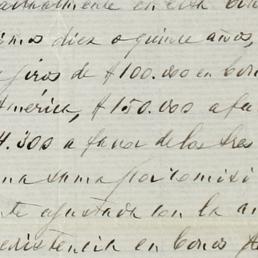 actualmente en esta
imos diez o quince años,
giros de $100.000 en
América, $150.000 a fa
4.300 a favor de los tres
na suma por comisi
te ajustada con la
existencia en bonos